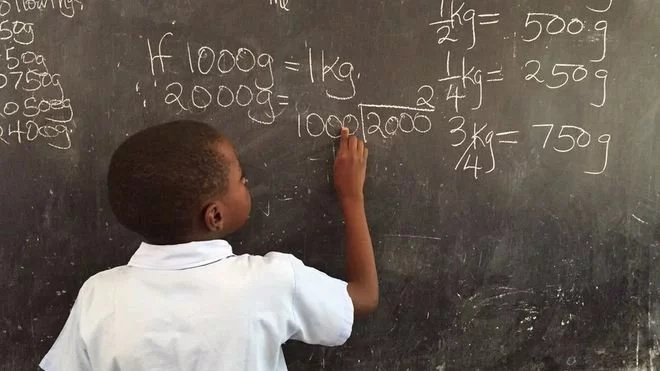 followings
50g
50g
0750g
0500g
2400g
If 1000g = 1kg.
2000g =
2
1000 2000
1/2 kg = 500g
1/4 kg = 250g
3/4 kg = 750g